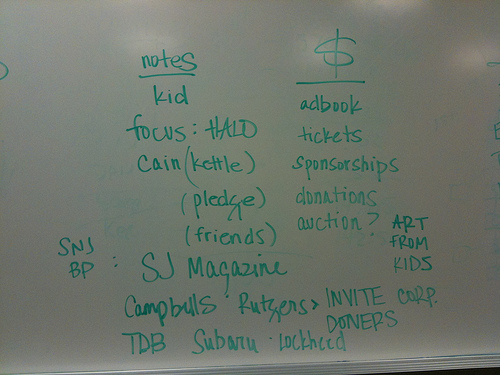 notes
kid
focus: HALO
Cain (kettle)
(pledge)
(friends)
$
adbook
tickets
sponsorships
donations
auction?
ART
FROM
KIDS
SNJ
BP : SJ Magazine
Campbulls Rutgers > INVITE CORP.
DONERS
TDB Subaru · Lockheed